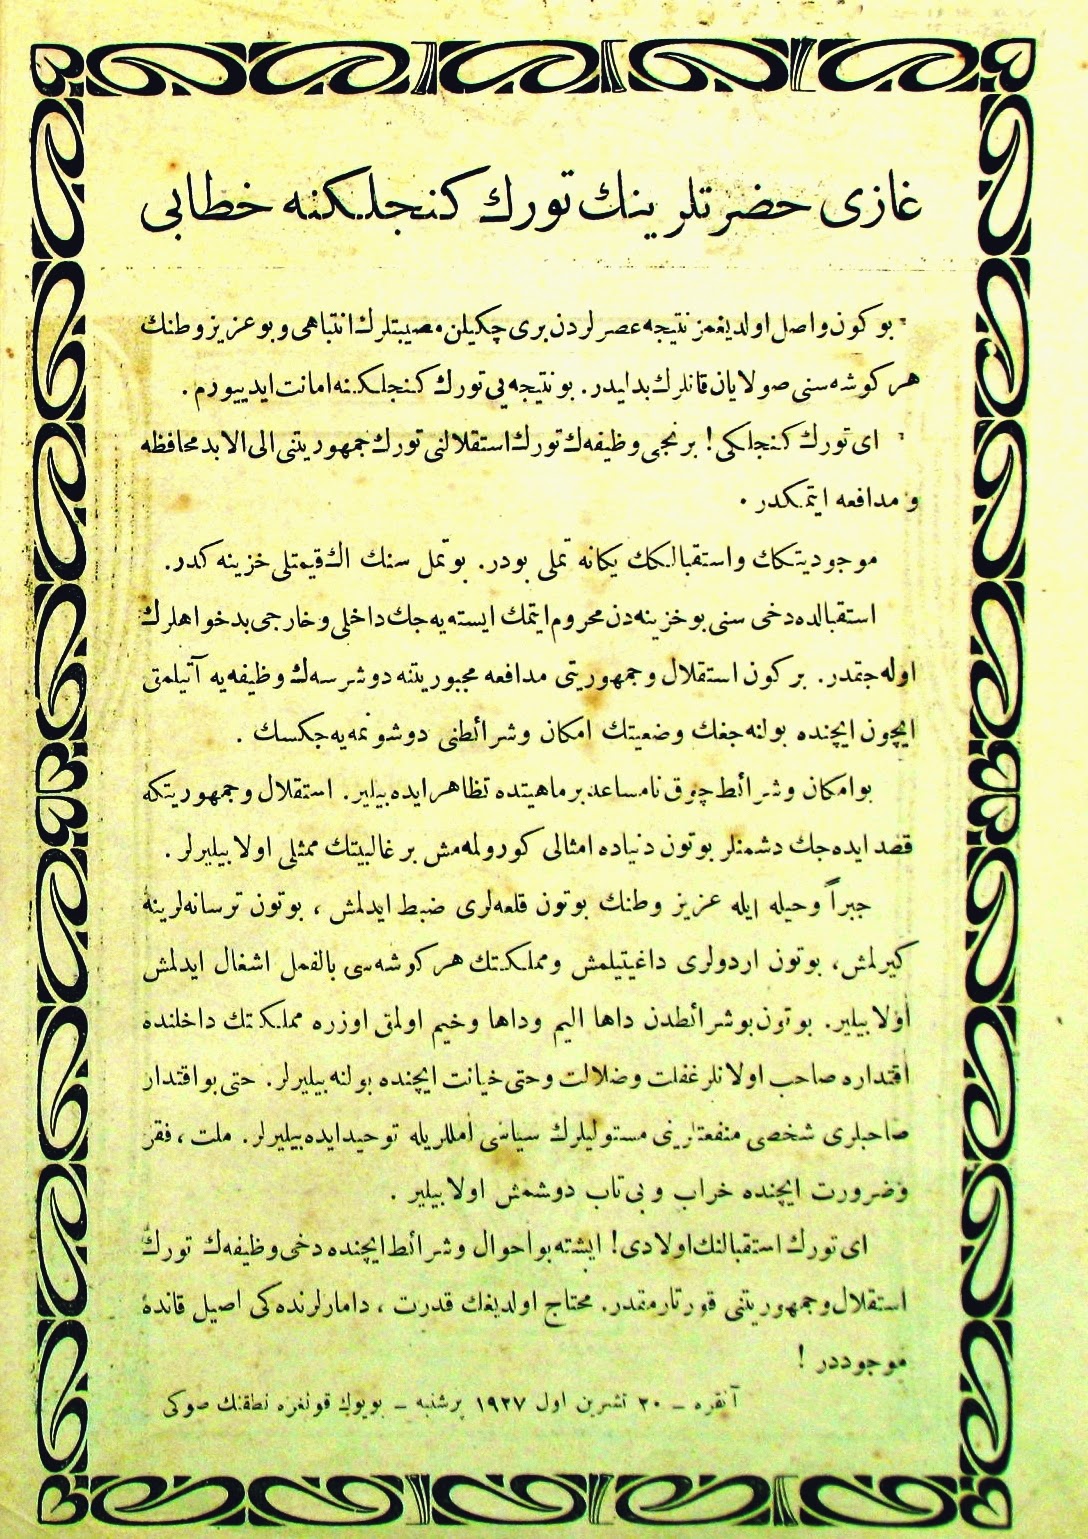 غازی حضرتلرینك تورك كنجلكنه خطابی
" بو كون واصل اولدیغمز نتیجه عصرلردن بری چكیلن مصیبتلرك انتباهی و بو عزیز وطنك
هر كوشه سنی صولایان قانلرك بدلیدر. بو نتیجه یی تورك كنجلكنه امانت ایدییورم .
" ای تورك كنجلكی! برنجی وظیفه ك تورك استقلالنی تورك جمهوریتنی الی الابد محافظه
و مدافعه ایتمكدر .
موجودیتكك واستقبالكك یكانه تملی بودر. بو تمل سنك اك قیمتلی خزینه كدر.
استقبالده دخی سنی بو خزینه دن محروم ایتمك ایسته یه جك داخلی و خارجی بدخواهلرك
اوله جقدر. بر كون استقلال و جمهوریتی مدافعه مجبوریتنه دوشرسه ك وظیفه یه آتیلمق
ایچون ایچنده بولنه جغك وضعیتك امكان وشرائطنی دوشونمه یه جكسك .
بو امكان و شرائط چوق نامساعد بر ماهیتده تظاهر ایده بیلیر. استقلال و جمهوریتكه
قصد ایده جك دشمنلر بوتون دنیاده امثالی كورولمه مش بر غالبیتك ممثلی اولا بیلیرلر .
جبراً وحیله ایله عزیز وطنك بوتون قلعه لری ضبط ایدلمش ، بوتون ترسانه لرینه
كیرلمش، بوتون اردولری داغیتیلمش ومملكتك هر كوشه سی بالفعل اشغال ایدلمش
اولا بیلیر. بوتون بو شرائطدن داها الیم وداها وخیم اولمق اوزره مملكتك داخلنده
اقتداره صاحب اولانلر غفلت وضلالت وحتی خیانت ایچنده بولنه بیلیرلر. حتی بو اقتدار
صاحبلری شخصی منفعتلرینی مستولیلرك سیاسی امللریله توحید ایده بیلیرلر. ملت ، فقر
وضرورت ایچنده خراب و بی تاب دوشمش اولا بیلیر .
ای تورك استقبالنك اولادی! ایشته بو احوال وشرائط ایچنده دخی وظیفه ك تورك
استقلال و جمهوریتنی قورتارمقدر. محتاج اولدیغك قدرت ، دامارلرنده كی اصیل قانده
موجوددر !
آنقره ــ ٢٠ تشرین اول ١٩٢٧ پرشنبه ــ بویوك قونغره نطقنك صوكی